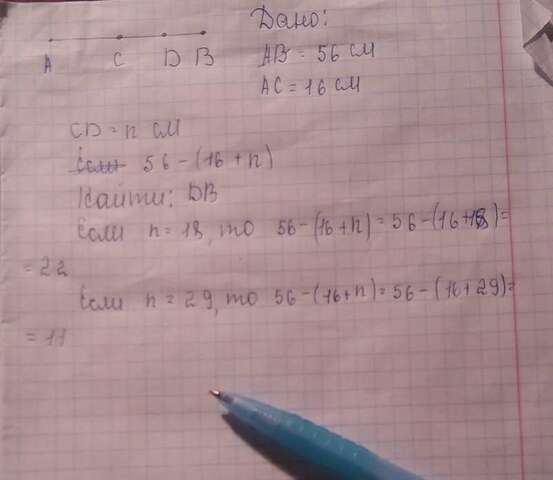 Дано:
A C D B
AB = 56 см
AC = 16 см
CD = n см
Если 56 - (16 + n)
Найти: DB
Если n = 18, то 56 - (16 + n) = 56 - (16 + 18) =
= 22
Если n = 29, то 56 - (16 + n) = 56 - (16 + 29) =
= 11